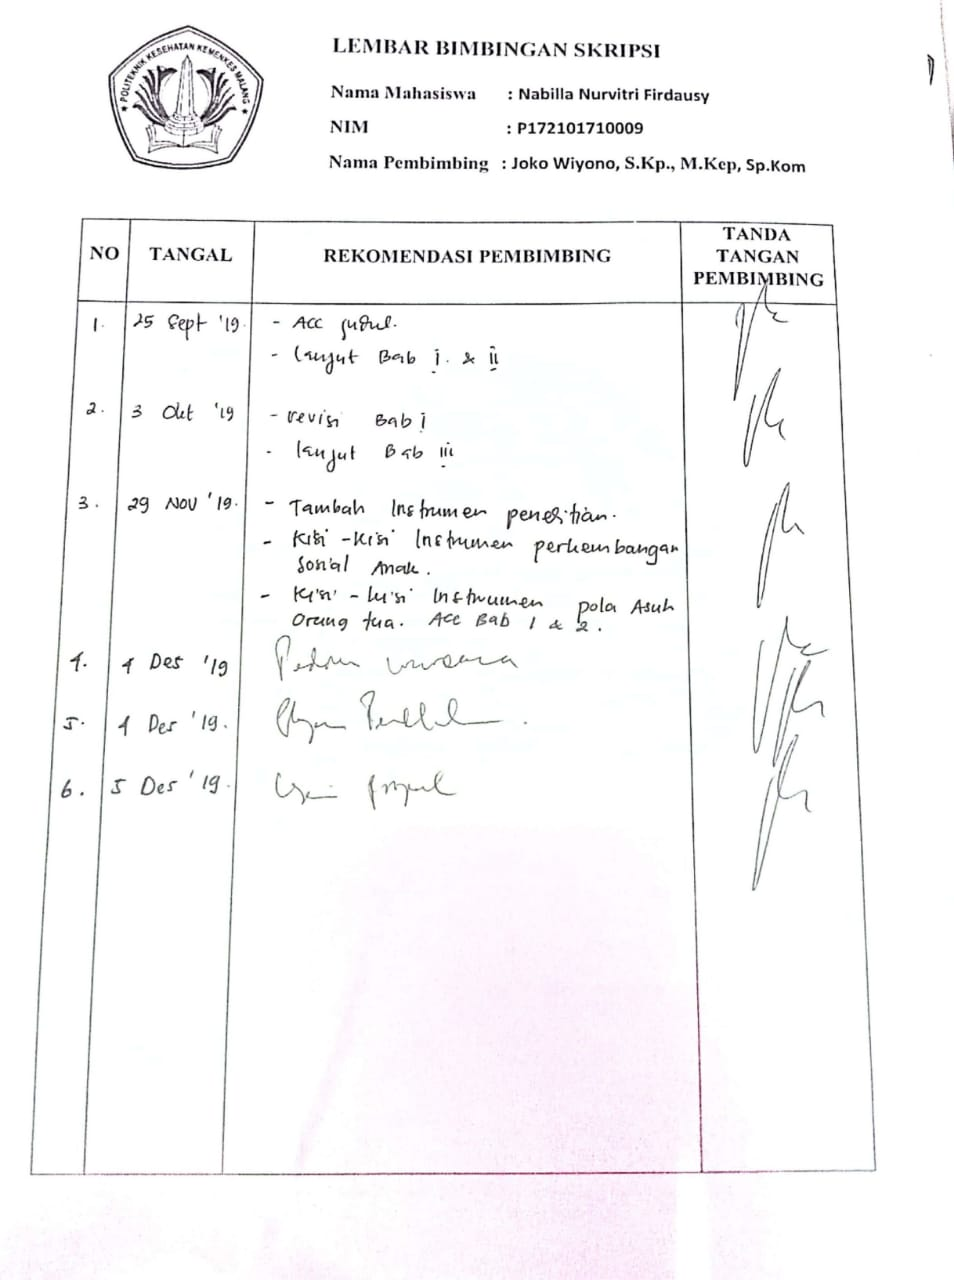 POLITEKNIK KESEHATAN KEMENKES MALANG
LEMBAR BIMBINGAN SKRIPSI
Nama Mahasiswa : Nabilla Nurvitri Firdausy
NIM : P172101710009
Nama Pembimbing : Joko Wiyono, S.Kp., M.Kep, Sp.Kom
NO TANGAL REKOMENDASI PEMBIMBING TANDA TANGAN PEMBIMBING
1. 25 Sept '19. - Acc judul.
- lanjut Bab I. & II
2. 3 Okt '19 - revisi Bab I
- lanjut Bab III
3. 29 Nov '19. - Tambah Instrumen penelitian.
- Kisi - Kisi Instrumen perkembangan
Sosial Anak.
- Kisi - kisi Instrumen pola Asuh
Orang tua. Acc Bab 1 & 2.
4. 4 Des '19
5. 4 Des '19.
6. 5 Des '19.